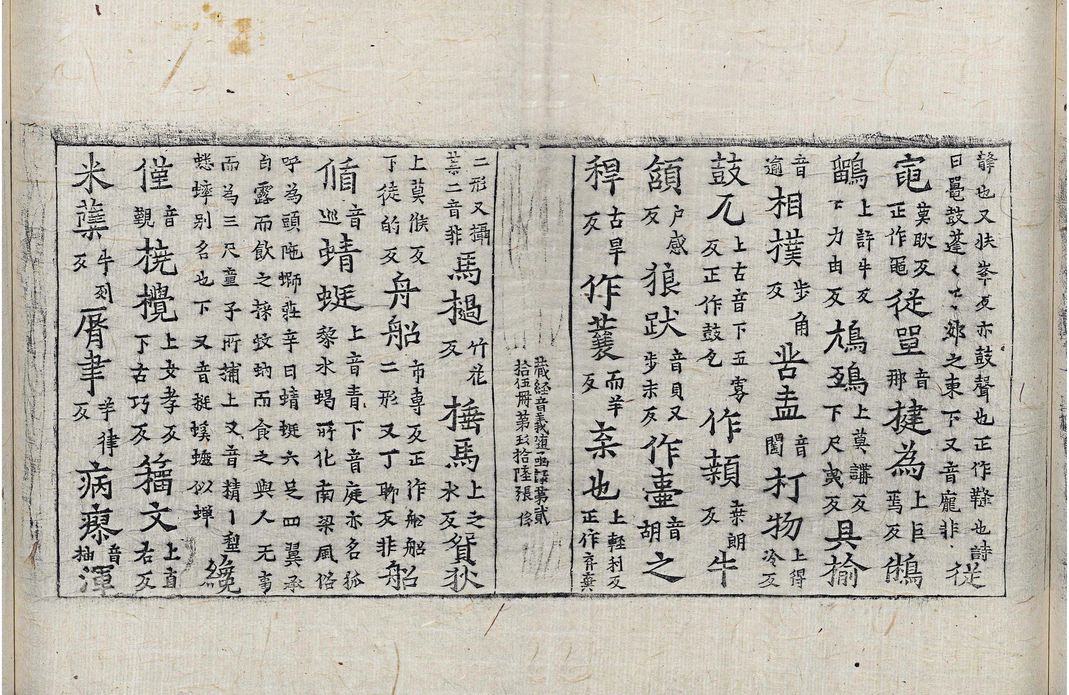 韸也又扶峯反亦鼓聲也正作韼也詩
曰鼍鼓蓬〻〻郊之東下又音龐非 従
黽莫耿反正作黽 従單音那 揵為上巨焉反 鵂
鶹上許牛反下力由反 鳭鵐上莫講反下尺夷反 具揄
音逾 相撲步角反 岩盍音闔 打物上得冷反
鼓兀上古音下五寡反正作鼓乞 作顙桒朗反 牛
頷戸感反 狼跋音貝又步末反 作壷音胡 之
稈古旱反 作蘘而羊反 弃也上輕利反正作弃棄
藏經音義随函録第貳
拾伍冊第玖拾陸張 俗
二形又攝葉二音非 馬檛竹花反 捶馬上之水反 貿狄
上莫候反下徒的反 舟船市專反正作舩船二形又丁聊反非 船
循音巡 蜻蜓上音青下音庭亦名狐
黎水蝎所化南梁風俗
呼為頭䖤螄莊辛曰蜻蜓六足四翼承
自露而飲之採蚊蚋而食之與人无事
而為三尺童子所捕上又音精丨䖽
蟋蟀别名也下又音挻蝘蜓似蟬 纔
僅音覲 撓攪上女孝反下古巧反 籀文上直右反
米蘖牛列反 屑聿羊律反 病瘳音抽 渾